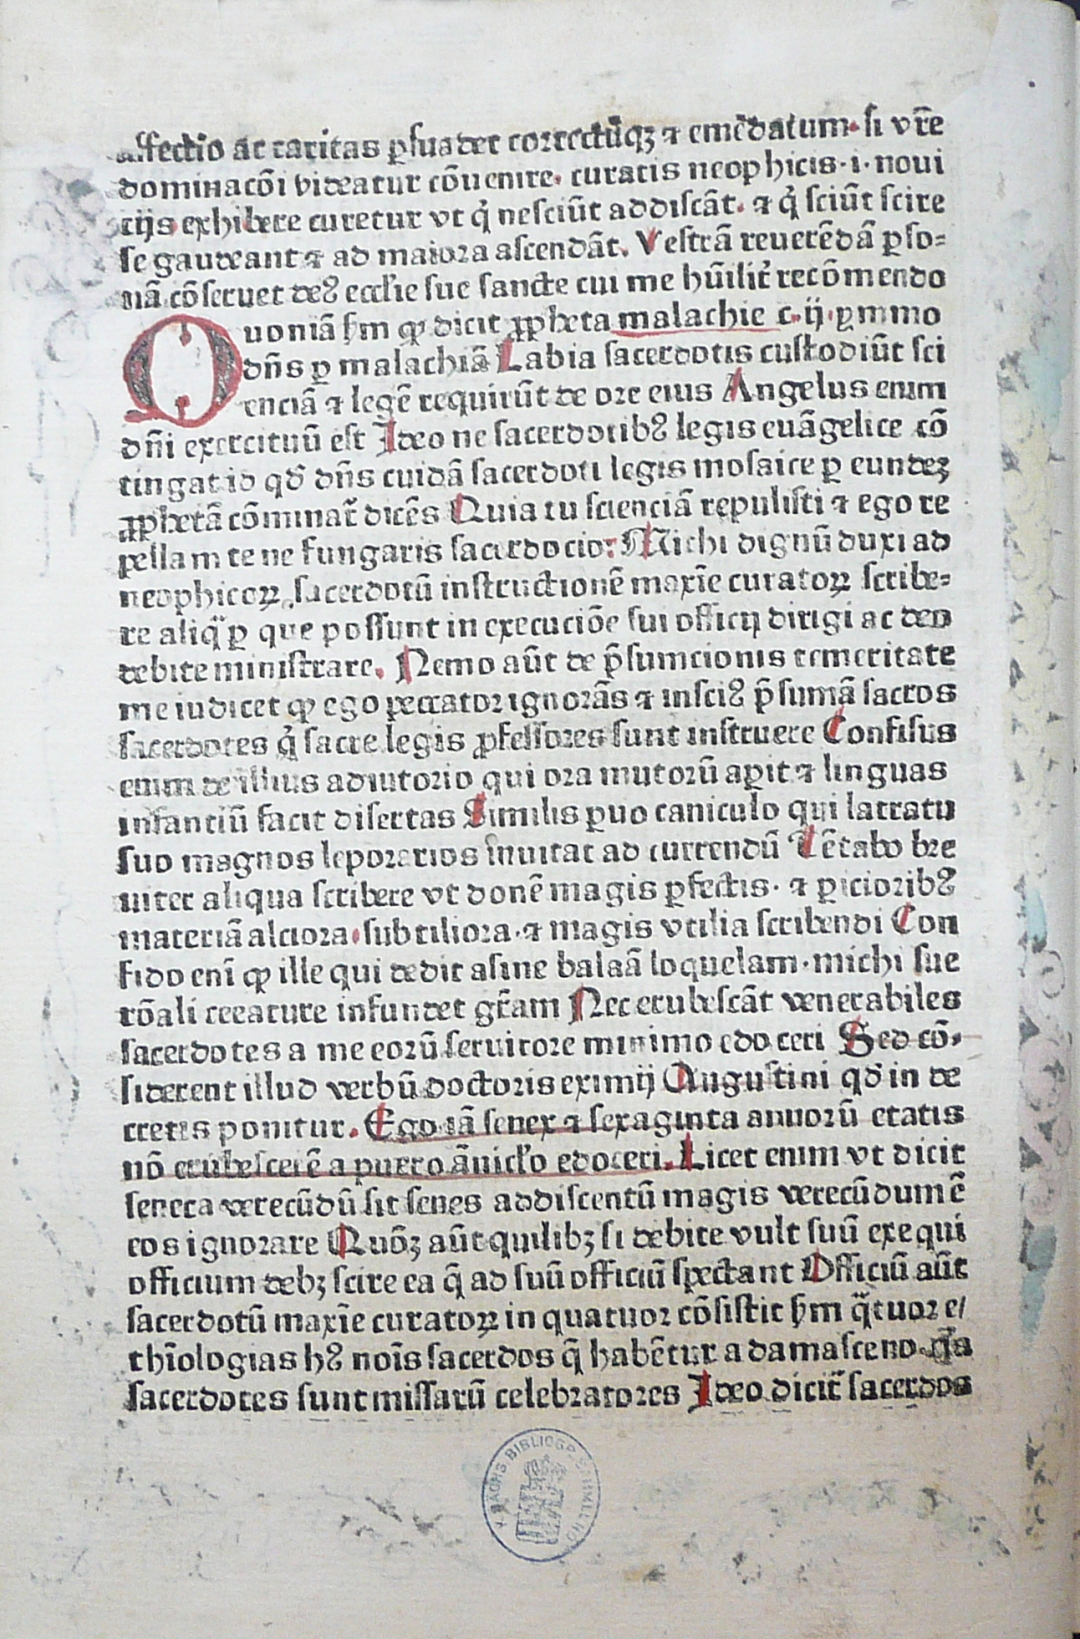 affectio ac caritas ꝑsuadet correctūqꝫ ⁊ emēdatum. si vr̄e
dominacōi videatur cōuenire. curatis neophicis .i. noui
cijs exhibere curetur vt q̇ nesciūt addiscāt. ⁊ q̇ sciūt scire
se gaudeant ⁊ ad maiora ascendāt. Vestrā reuerēdā ꝑso⸗
nā cōseruet deꝰ eccl'ie sue sancte cui me hūilit̾ recōmendo
Quoniā sꝫm ꝙ dicit ꝓpheta malachie c. ij. ymmo
dn̄s ꝑ malachiā Labia sacerdotis custodiūt sci
enciā ⁊ legē requirūt de ore eius Angelus enim
dn̄i exercituū est Ideo ne sacerdotibꝰ legis euāgelice cō
tingat id qd̄ dn̄s cuidā sacerdoti legis mosaice ꝑ eundeꝫ
ꝓphetā cōminat̄ dicēs Quia tu scienciā repulisti ⁊ ego re
pellam te ne fungaris sacerdocio: Michi dignū duxi ad
neophicoꝝ sacerdotū instructionē maxīe curatoꝝ scribe⸗
re aliq̄ ꝑ que possunt in execuciōe sui officij dirigi ac deo
debite ministrare. Nemo aūt de p̄sumcionis temeritate
me iudicet ꝙ ego peccator ignorās ⁊ insciꝰ p̄sumā sacros
sacerdotes q̇ sacre legis ꝓfessores sunt instruere Confisus
enim de illius adiutorio qui ora mutorū aꝑit ⁊ linguas
infanciū facit disertas Similis ꝑuo caniculo qui latratu
suo magnos leporarios inuitat ad currendū Tētabo bre
uiter aliqua scribere vt donē magis ꝑfectis. ⁊ ꝑicioribꝰ
materiā alciora. subtiliora. ⁊ magis vtilia scribendi Con
fido enī ꝙ ille qui dedit asine balaā loquelam. michi sue
rōali creature infundet gr̄am Nec erubescāt venerabiles
sacerdotes a me eorū seruitore minimo edoceri Sed cō⸗
siderent illud verbū doctoris eximij Augustini qd̄ in de
cretis ponitur. Ego iā senex ⁊ sexaginta annorū etatis
nō erubescerē a puero ānicl'o edoceri. Licet enim vt dicit
seneca verecūdū sit senes addiscentū magis verecūdum ē
eos ignorare Quōꝫ aūt quilibꝫ si debite vult suū exequi
officium debꝫ scire ea q̄ ad suū officiū spectant Officiū aūt
sacerdotū maxīe curatoꝝ in quatuor cōsistit sꝫm q̄tuor e/
thīologias hꝰ nois sacerdos q̄ habētur a damasceno. q̄a
sacerdotes sunt missarū celebratores Ideo dicit̄ sacerdos